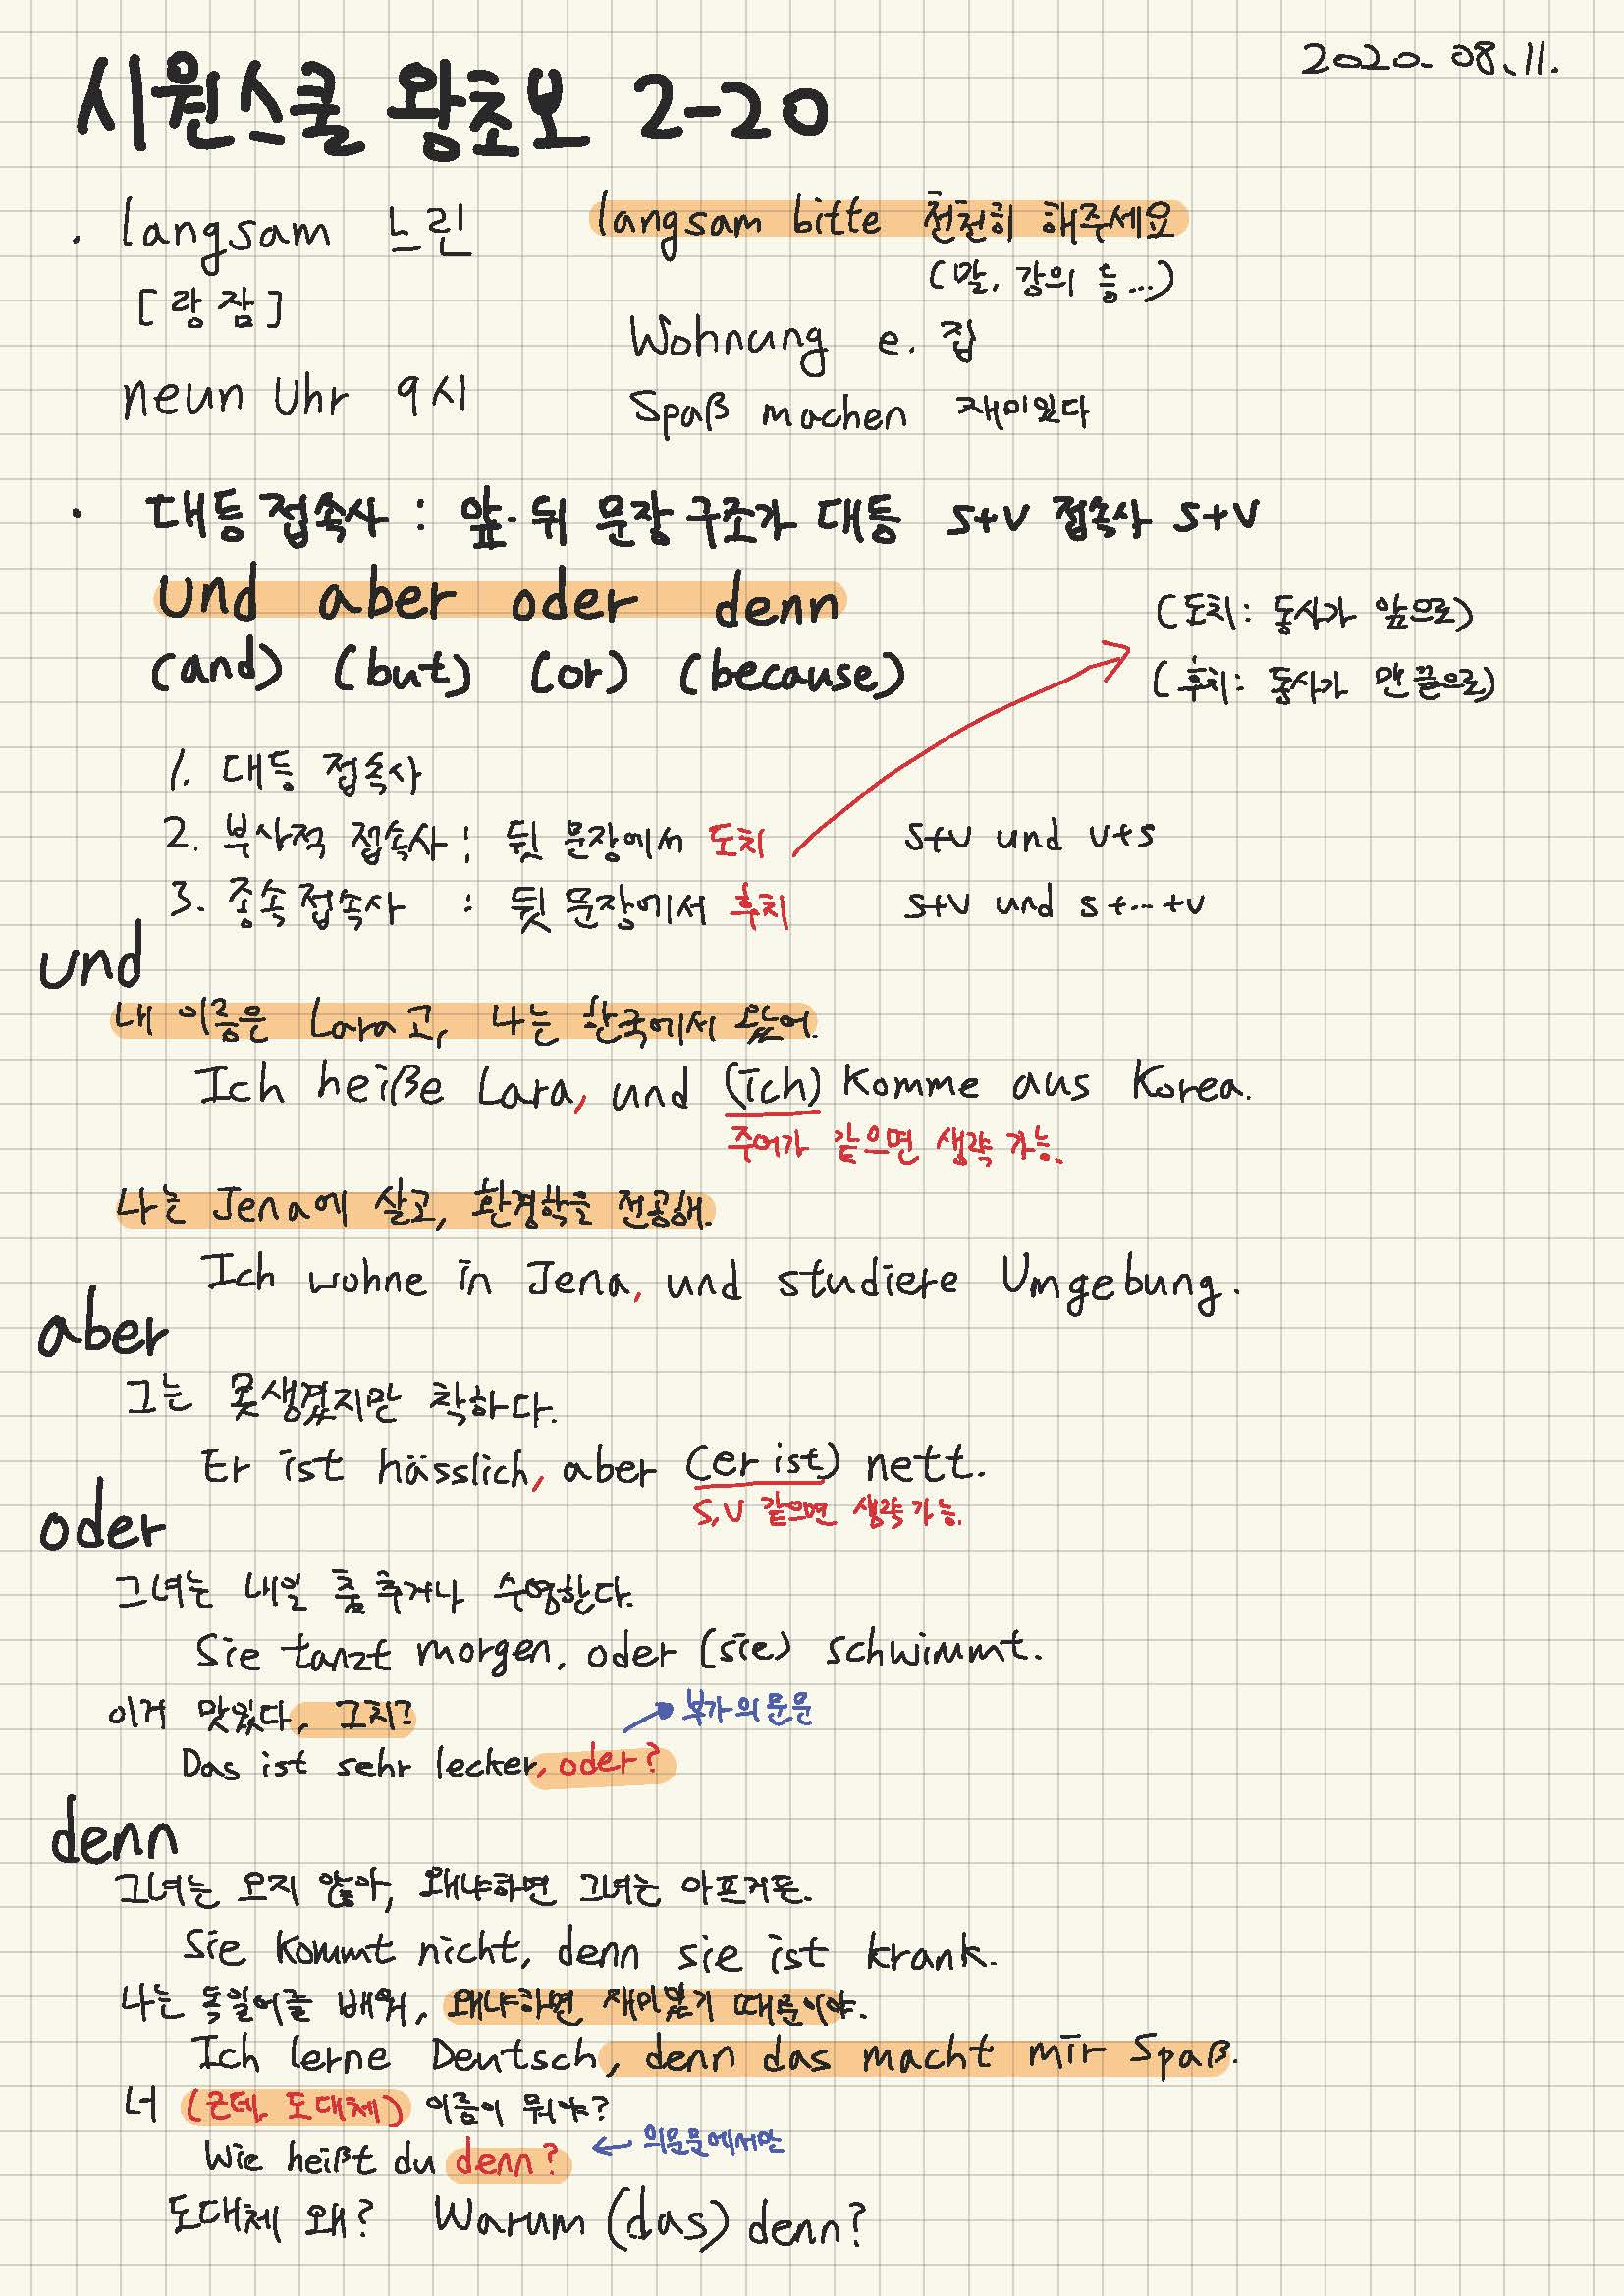 2020. 08. 11.
시원스쿨 왕초보 2-20
· langsam 느린
[랑잠]
neun Uhr 9시
langsam bitte 천천히 해주세요
(말, 강의 등...)
Wohnung e. 집
Spaß machen 재미있다
· 대등 접속사 : 앞·뒤 문장 구조가 대등 S+V 접속사 S+V
und aber oder denn
(and) (but) (or) (because)
(도치: 동사가 앞으로)
(후치: 동사가 맨 끝으로)
1. 대등 접속사
2. 부사적 접속사 : 뒷 문장에서 도치 S+V und V+S
3. 종속 접속사 : 뒷 문장에서 후치 S+V und S+...+V
und
내 이름은 Lara고, 나는 한국에서 왔어.
Ich heiße Lara, und (ich) komme aus Korea.
주어가 같으면 생략 가능.
나는 Jena에 살고, 환경학을 전공해.
Ich wohne in Jena, und studiere Umgebung.
aber
그는 못생겼지만 착하다.
Er ist hässlich, aber (er ist) nett.
S,V 같으면 생략 가능.
oder
그녀는 내일 춤 추거나 수영한다.
Sie tanzt morgen, oder (sie) schwimmt.
이거 맛있다, 그치?
부가의문문
Das ist sehr lecker, oder?
denn
그녀는 오지 않아, 왜냐하면 그녀는 아프거든.
Sie kommt nicht, denn sie ist krank.
나는 독일어를 배워, 왜냐하면 재미있기 때문이야.
Ich lerne Deutsch, denn das macht mir Spaß.
너 (근데, 도대체) 이름이 뭐야?
Wie heißt du denn? ← 의문문에서만
도대체 왜? Warum (das) denn?